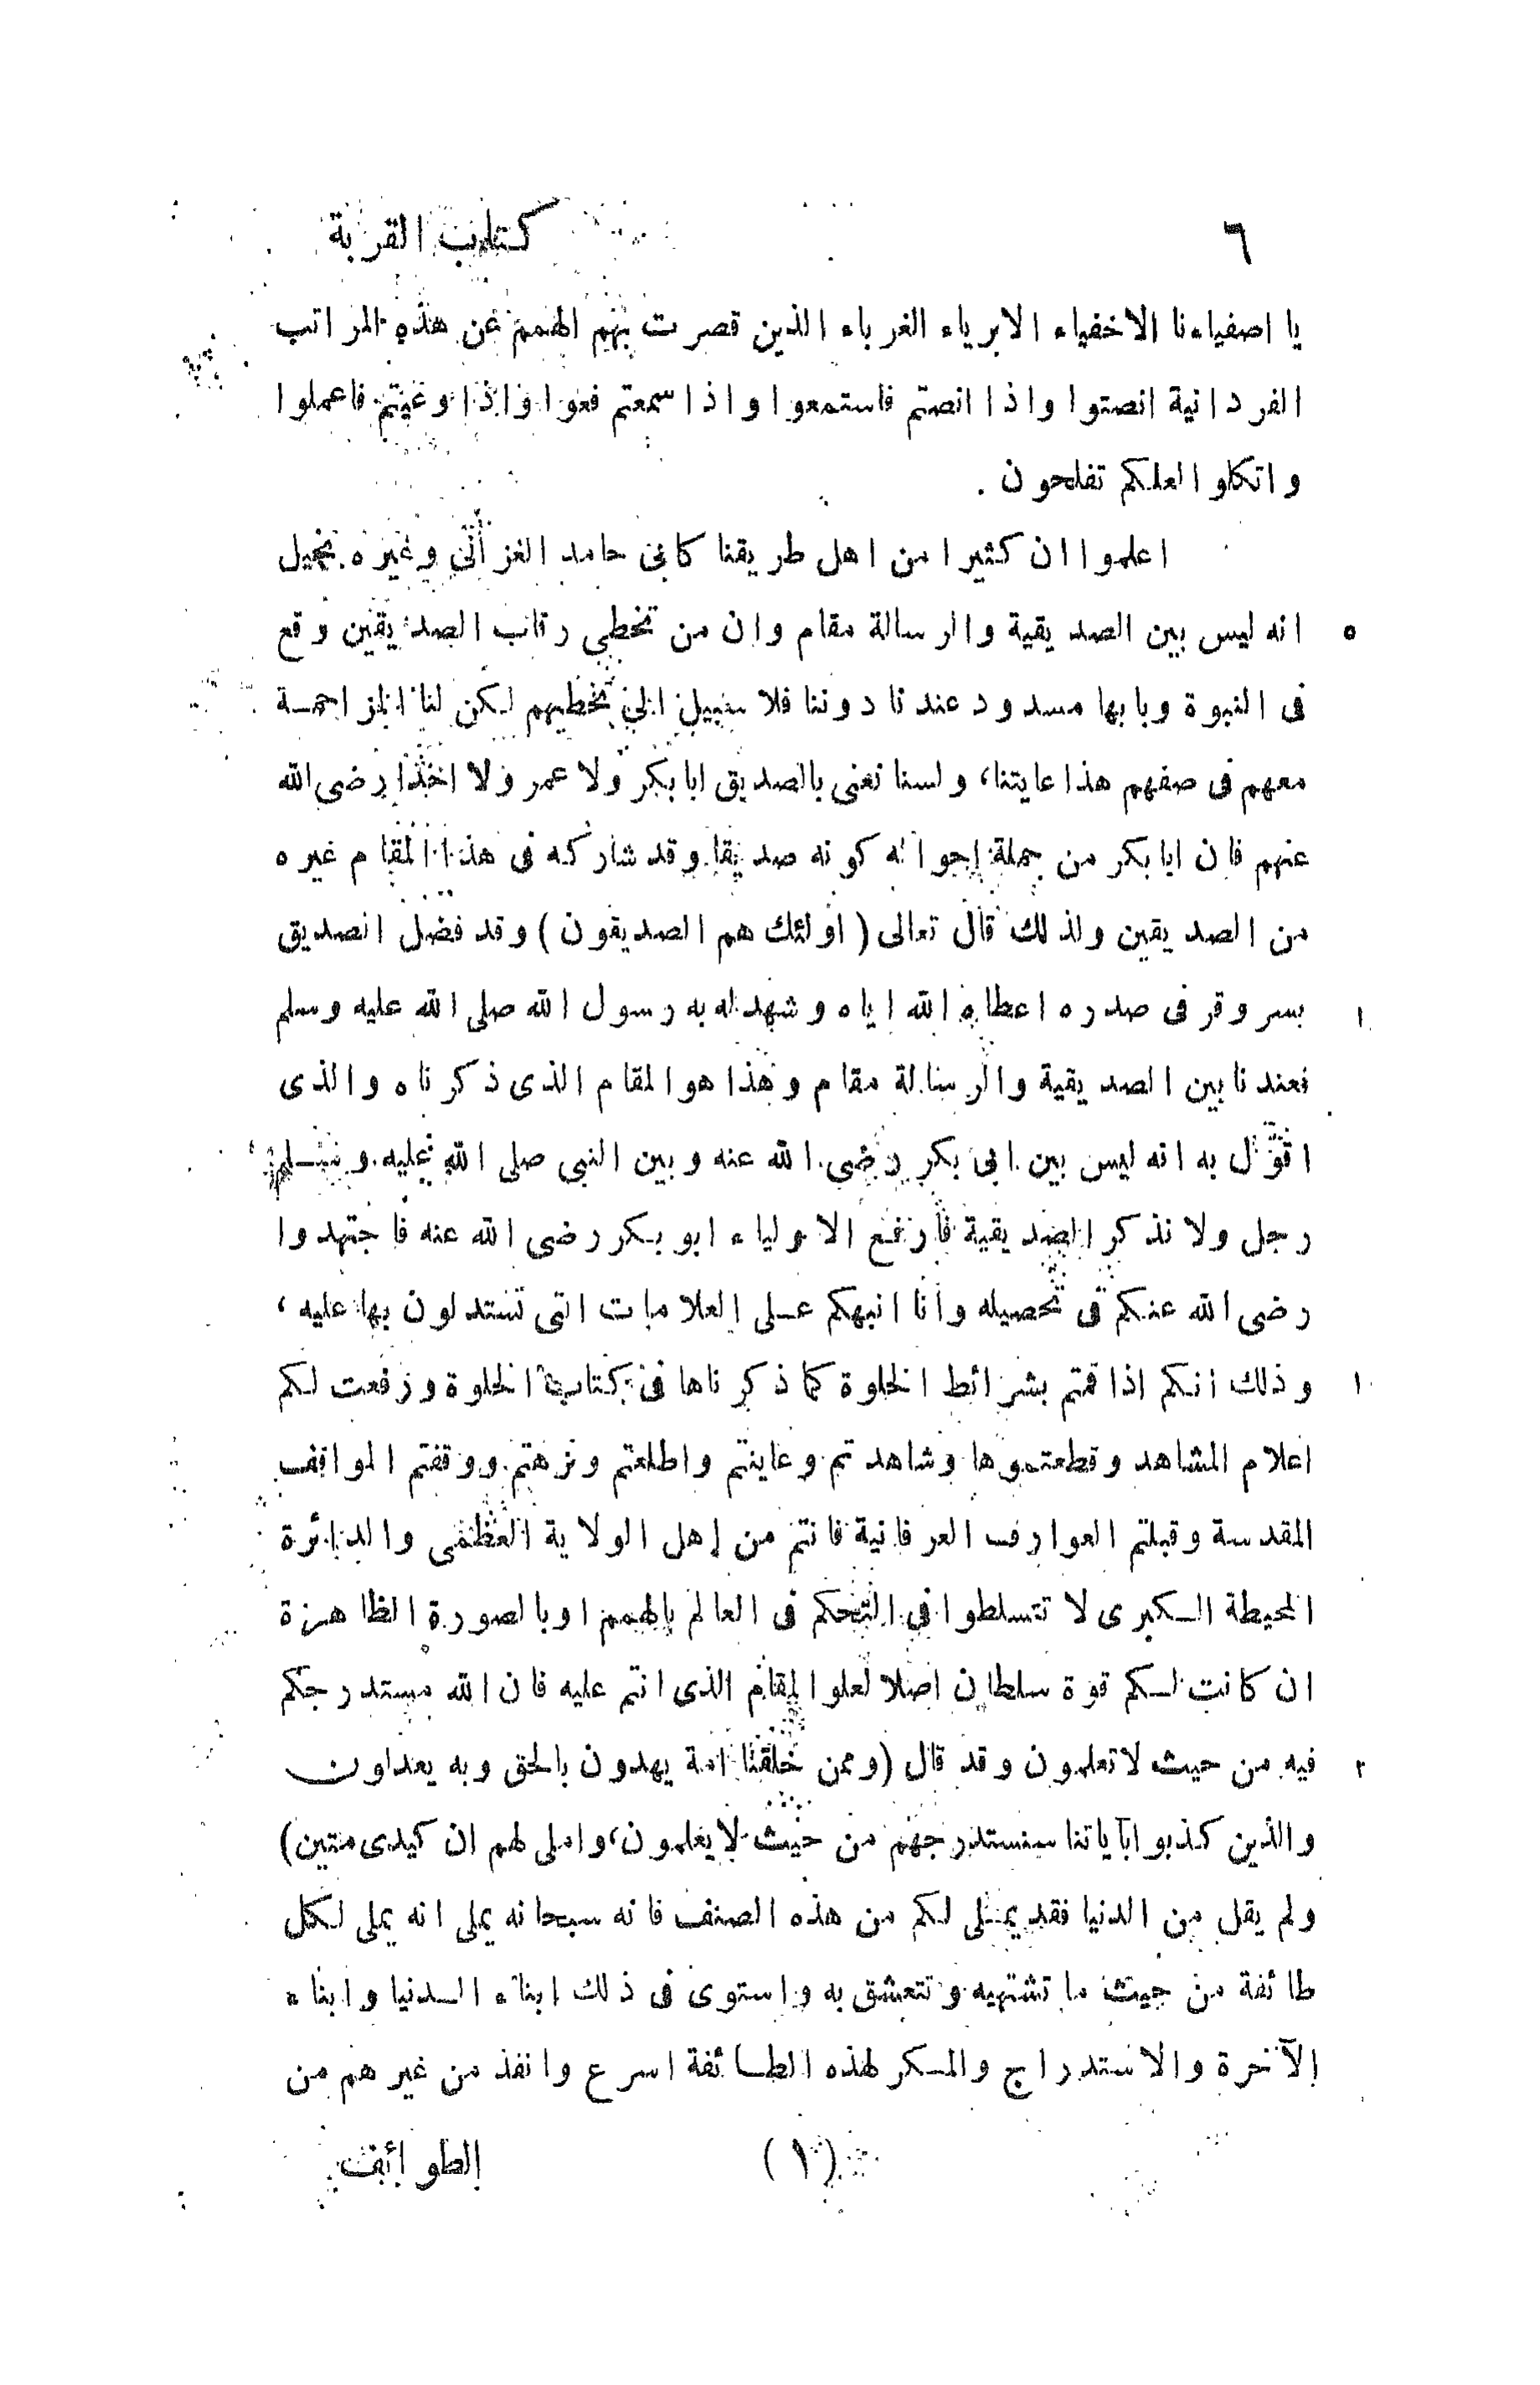 ٦ كتاب القربة
يا اصفياءنا الاخفياء الابرياء الغرباء الذين قصرت بهم الهمم عن هذه المراتب
الفردانية انصتوا واذا انصتم فاستمعوا واذا سمعتم فعوا واذا وعيتم فاعملوا
واتكلوا لعلكم تفلحون .
اعلموا ان كثيرا من اهل طريقنا كابى حامد الغزالى وغيره تخيل
٥ انه ليس بين الصديقية والرسالة مقام وان من تخطى رقاب الصديقين وقع
فى النبوة وبابها مسدود عندنا دوننا فلا سبيل الى تخطيهم لكن لنا المزاحمة
معهم فى صفهم هذا غايتنا، ولسنا نعنى بالصديق ابابكر ولا عمر ولا احدا رضى الله
عنهم فان ابابكر من جملة احواله كونه صديقا وقد شاركه فى هذا المقام غيره
من الصديقين ولذلك قال تعالى (اولئك هم الصديقون) وقد فضل الصديق
١ بسر وقر فى صدره اعطاه الله اياه وشهد له به رسول الله صلى الله عليه وسلم
فعندنا بين الصديقية والرسالة مقام وهذا هو المقام الذى ذكرناه والذى
اقول به انه ليس بين ابى بكر رضى الله عنه وبين النبى صلى الله عليه وسلم
رجل ولا نذكر الصديقية فارفع الاولياء ابو بكر رضى الله عنه فاجتهدوا
رضى الله عنكم فى تحصيله وانا انبهكم على العلامات التى تستدلون بها عليه،
١ وذلك انكم اذا قمتم بشرائط الخلوة كما ذكرناها فى كتاب الخلوة ورفعت لكم
اعلام المشاهد وقطعتموها وشاهدتم وعاينتم واطلعتم ونزهتم ووقفتم المواقف
المقدسة وقبلتم العوارف العرفانية فانتم من اهل الولاية العظمى والدائرة
المحيطة الكبرى لا تتسلطوا فى التحكم فى العالم بالهمم او بالصورة الظاهرة
ان كانت لكم قوة سلطان اصلا لعلو المقام الذى انتم عليه فان الله مستدرجكم
٢ فيه من حيث لاتعلمون وقد قال (وممن خلقنا امة يهدون بالحق وبه يعدلون
والذين كذبوا بآياتنا سنستدرجهم من حيث لايعلمون، واملى لهم ان كيدى متين)
ولم يقل من الدنيا فقد يملى لكم من هذه الصنف فانه سبحانه يملى انه يملى لكل
طائفة من حيث ما تشتهيه وتتعشق به واستوى فى ذلك ابناء الدنيا وابناء
الآخرة والاستدراج والمكر لهذه الطائفة اسرع وانفذ من غيرهم من
(١) الطوائف